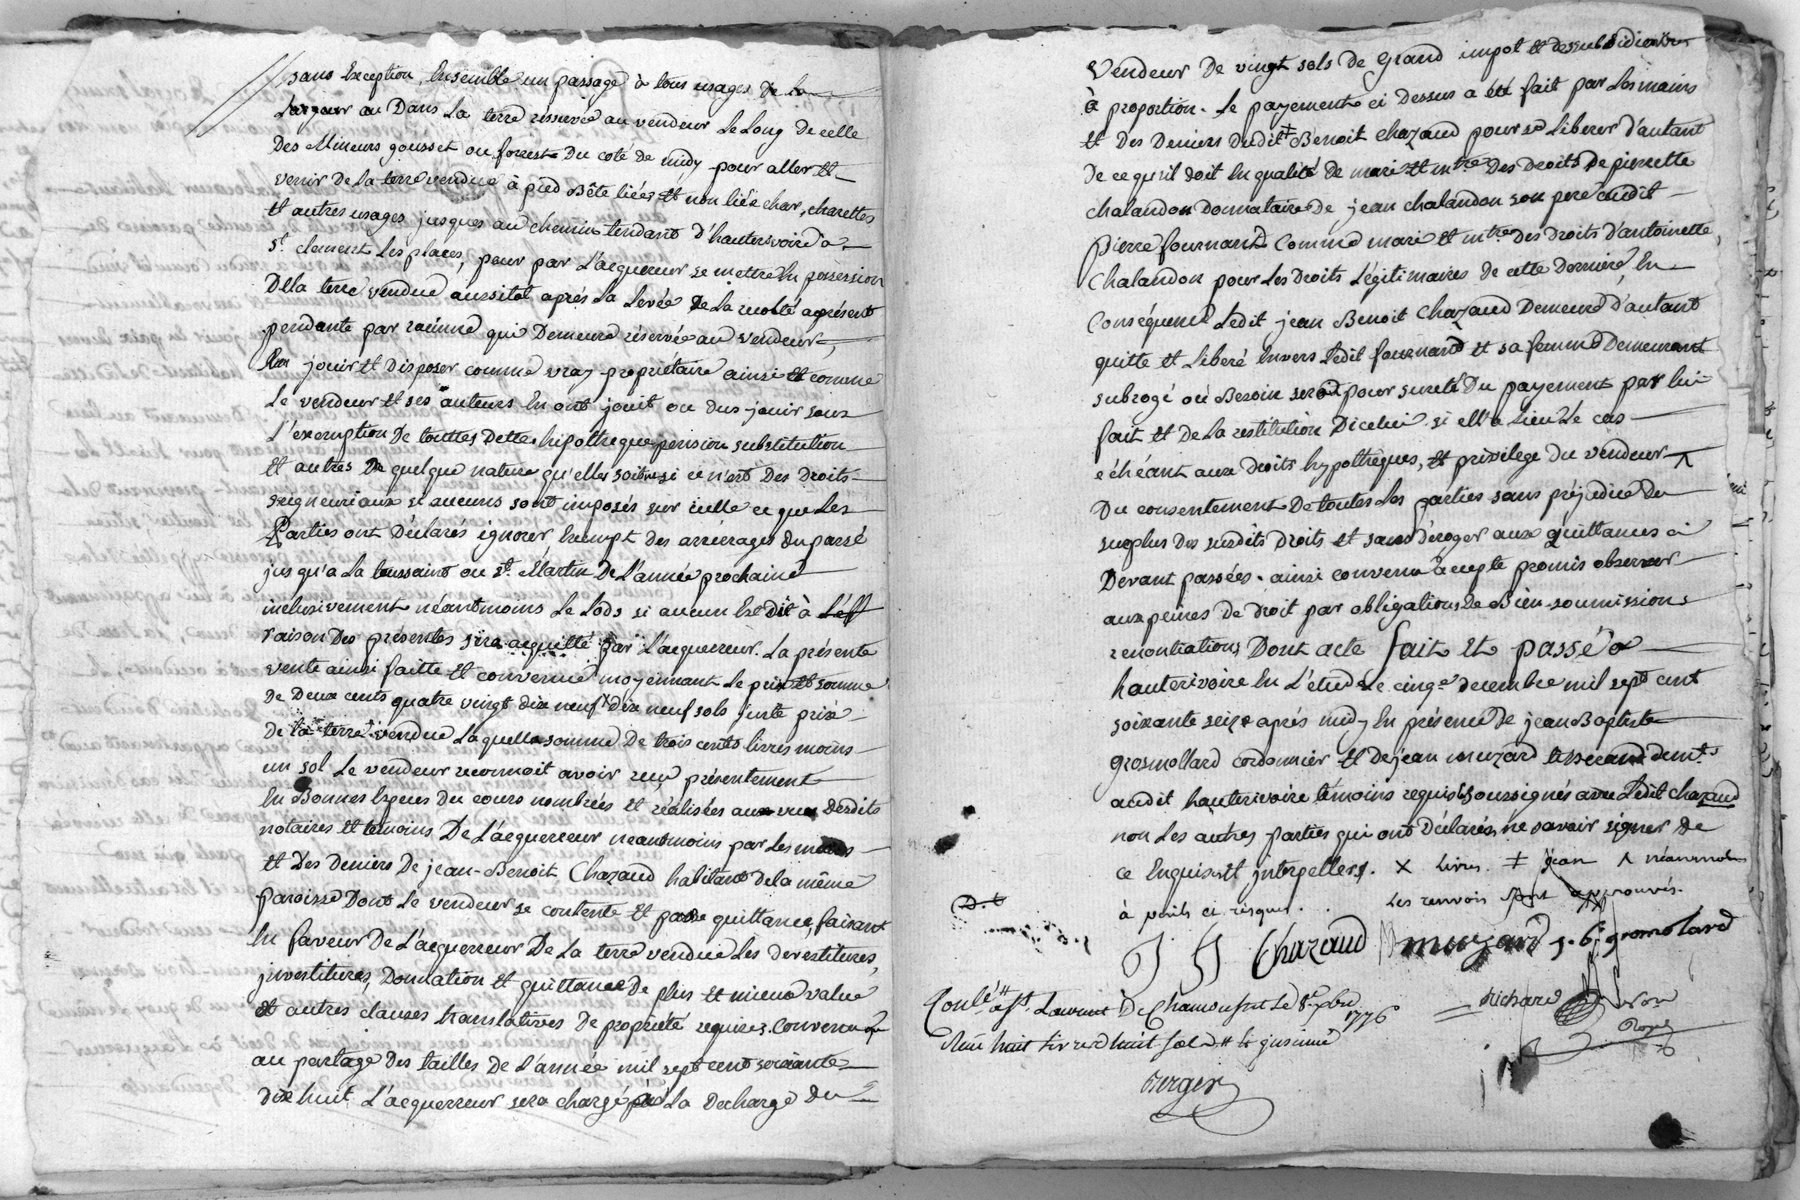 sans Exception, Ensemble un passage à tous usages de la
Largeur au Dans La terre reservée au vendeur Le Long de celle
Des Mineurs gousset ou forrest Du coté de midy pour aller Et
venir De La terre vendue à pied Bête liées Et non liée char, charettes
Et autres usages jusques au chemin tendant D'hauterivoire à
St. clement Les places, pour par L'acquereur se mettre En possession
De la terre vendue aussitot aprés La Levée De La recolte aprésent
pendante par racinne qui Demeure réservée au vendeur,
En jouir Et Disposer comme vray propriétaire ainsi Et comme
Le vendeur Et ses auteurs En ont jouit ou dus jouir sous
L'exemption De touttes Dettes hipotheque pension substitution
Et autres De quelque nature qu'elles soit si ce n'est Des Droits
seigneuriaux si aucuns sont imposés sur icelle ce que Les
Parties ont Déclarés ignorer Exempt des arrérages Du passé
jusqu'a La toussaint ou St. Martin De L'année prochaine
inclusivement néantmoins Le Lods si aucun Est dû à
raison Des présentes sera acquitté par L'acquerreur. La présente
vente ainsi faitte Et convenue moyennant Le prix Et somme
De Deux cents quatre vingt dix neuf x dix neuf sols juste prix
de la terre vendue Laquelle somme De trois cents livres moins
un sol Le vendeur reconnoit avoir reçu présentement
En Bonnes Espèces Du cours nombrées Et réalisées aux vues Desdits
notaires Et temoins De L'acquerreur neantmoins par Les mains
Et Des Deniers De jean-Benoit Chazaud habitant De la même
paroisse Dont Le vendeur se contente Et passe quittance, faisant
En faveur De L'acquerreur De La terre vendue Les Devestitures,
jnvestitures, Donnation Et quittance De plus Et mieux value
Et autres clauses translatives De propriété requises. Convenu que
au partage Des tailles De L'année mil sept cent soixante
dix huit L'acquerreur sera chargé à La Decharge Du
Vendeur De vingt sols De grand impot Et Des subsidiaires
à proportion. Le payement ci Dessus a été fait par Les mains
Et Des Deniers Dudit ǂ Benoit Chazaud pour se Liberer D'autant
De ce qu'il doit En qualité De mari Et mtre Des Droits De pierrette
chalandon Donnataire De jean chalandon son pere audit
Pierre fournand Comme mari Et mtre Des Droits D'antoinette,
Chalandon pour Les Droits Légitimaires De cette Derniere, En
Conséquence Ledit jean Benoit Chazaud Demeure D'autant
quitte Et Liberé Envers Ledit fournand Et sa femme Demeurant
subrogé où Besoin seroit pour sureté Du payement par lui
fait Et De La restitution Dicelui si Elle a Lieu Le cas
échéant aux Droits hypotheques, Et privilege Du vendeur ^
Du consentement De toutes Les parties sans préjudice Du
surplus Des susdits Droits Et sans Déroger aux quittances ci
Devant passées. ainsi convenu accepté promis observer
aux peines De Droit par obligations De Bien soumissions
renontiations Dont acte fait Et passé à
hauterivoire En L'étude Le cinqe decembre mil sept cent
soixante seize aprés midy En présence De jean Baptiste
grosmollard cordonnier Et De jean muzard tisserand demts
audit hauterivoire témoins requis soussignés avec Ledit Chazaud
non Les autres parties qui ont Déclarés ne savoir signer De
ce Enquis Et jnterpellers. x Livres. ǂ jean ^ néanmoins
à perils ci risques. Les renvois sont approuvés.
J J Chazaud muzard J. B. gromolard
Conlé à St. Laurent De Chamousset Le 8e xbre 1776
Reçu huit Livres huit sols
Richard
Berger